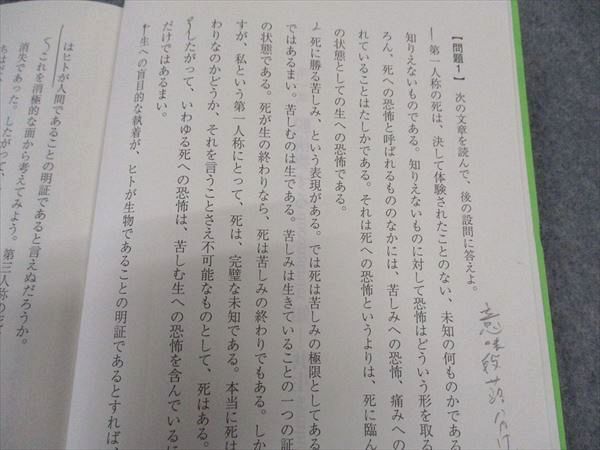 【問題1】 次の文章を読んで、後の設問に答えよ。
第一人称の死は、決して体験されたことのない、未知の何ものかである
知りえないものである。知りえないものに対して恐怖はどういう形を取る
ろん、死への恐怖と呼ばれるもののなかには、苦しみへの恐怖、痛みへの
れていることはたしかである。それは死への恐怖というよりは、死に臨ん
の状態としての生への恐怖である。
死に勝る苦しみ、という表現がある。では死は苦しみの極限としてある
ではあるまい。苦しむのは生である。苦しみは生きていることの一つの証
の状態である。死が生の終わりなら、死は苦しみの終わりでもある。しか
すが、私という第一人称にとって、死は、完璧な未知である。本当に死は
わりなのかどうか、それを言うことさえ不可能なものとして、死はある。
したがって、いわゆる死への恐怖は、苦しむ生への恐怖を含んでいるに
だけではあるまい。
生への盲目的な執着が、ヒトが生物であることの明証であるとすれば、
はヒトが人間であることの明証であると言えぬだろうか。
これを消極的な面から考えてみよう。第三人称の死
消失であった。したがって、
意味段落分け